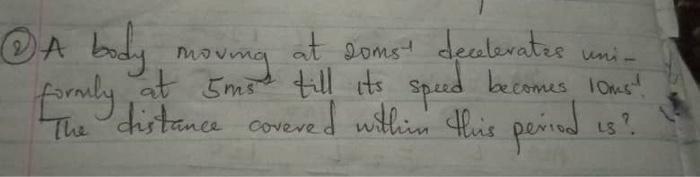 ② A body moving at 20ms⁻¹ decelerates uni-
formly at 5ms⁻² till its speed becomes 10ms⁻¹.
The distance covered within this period is?